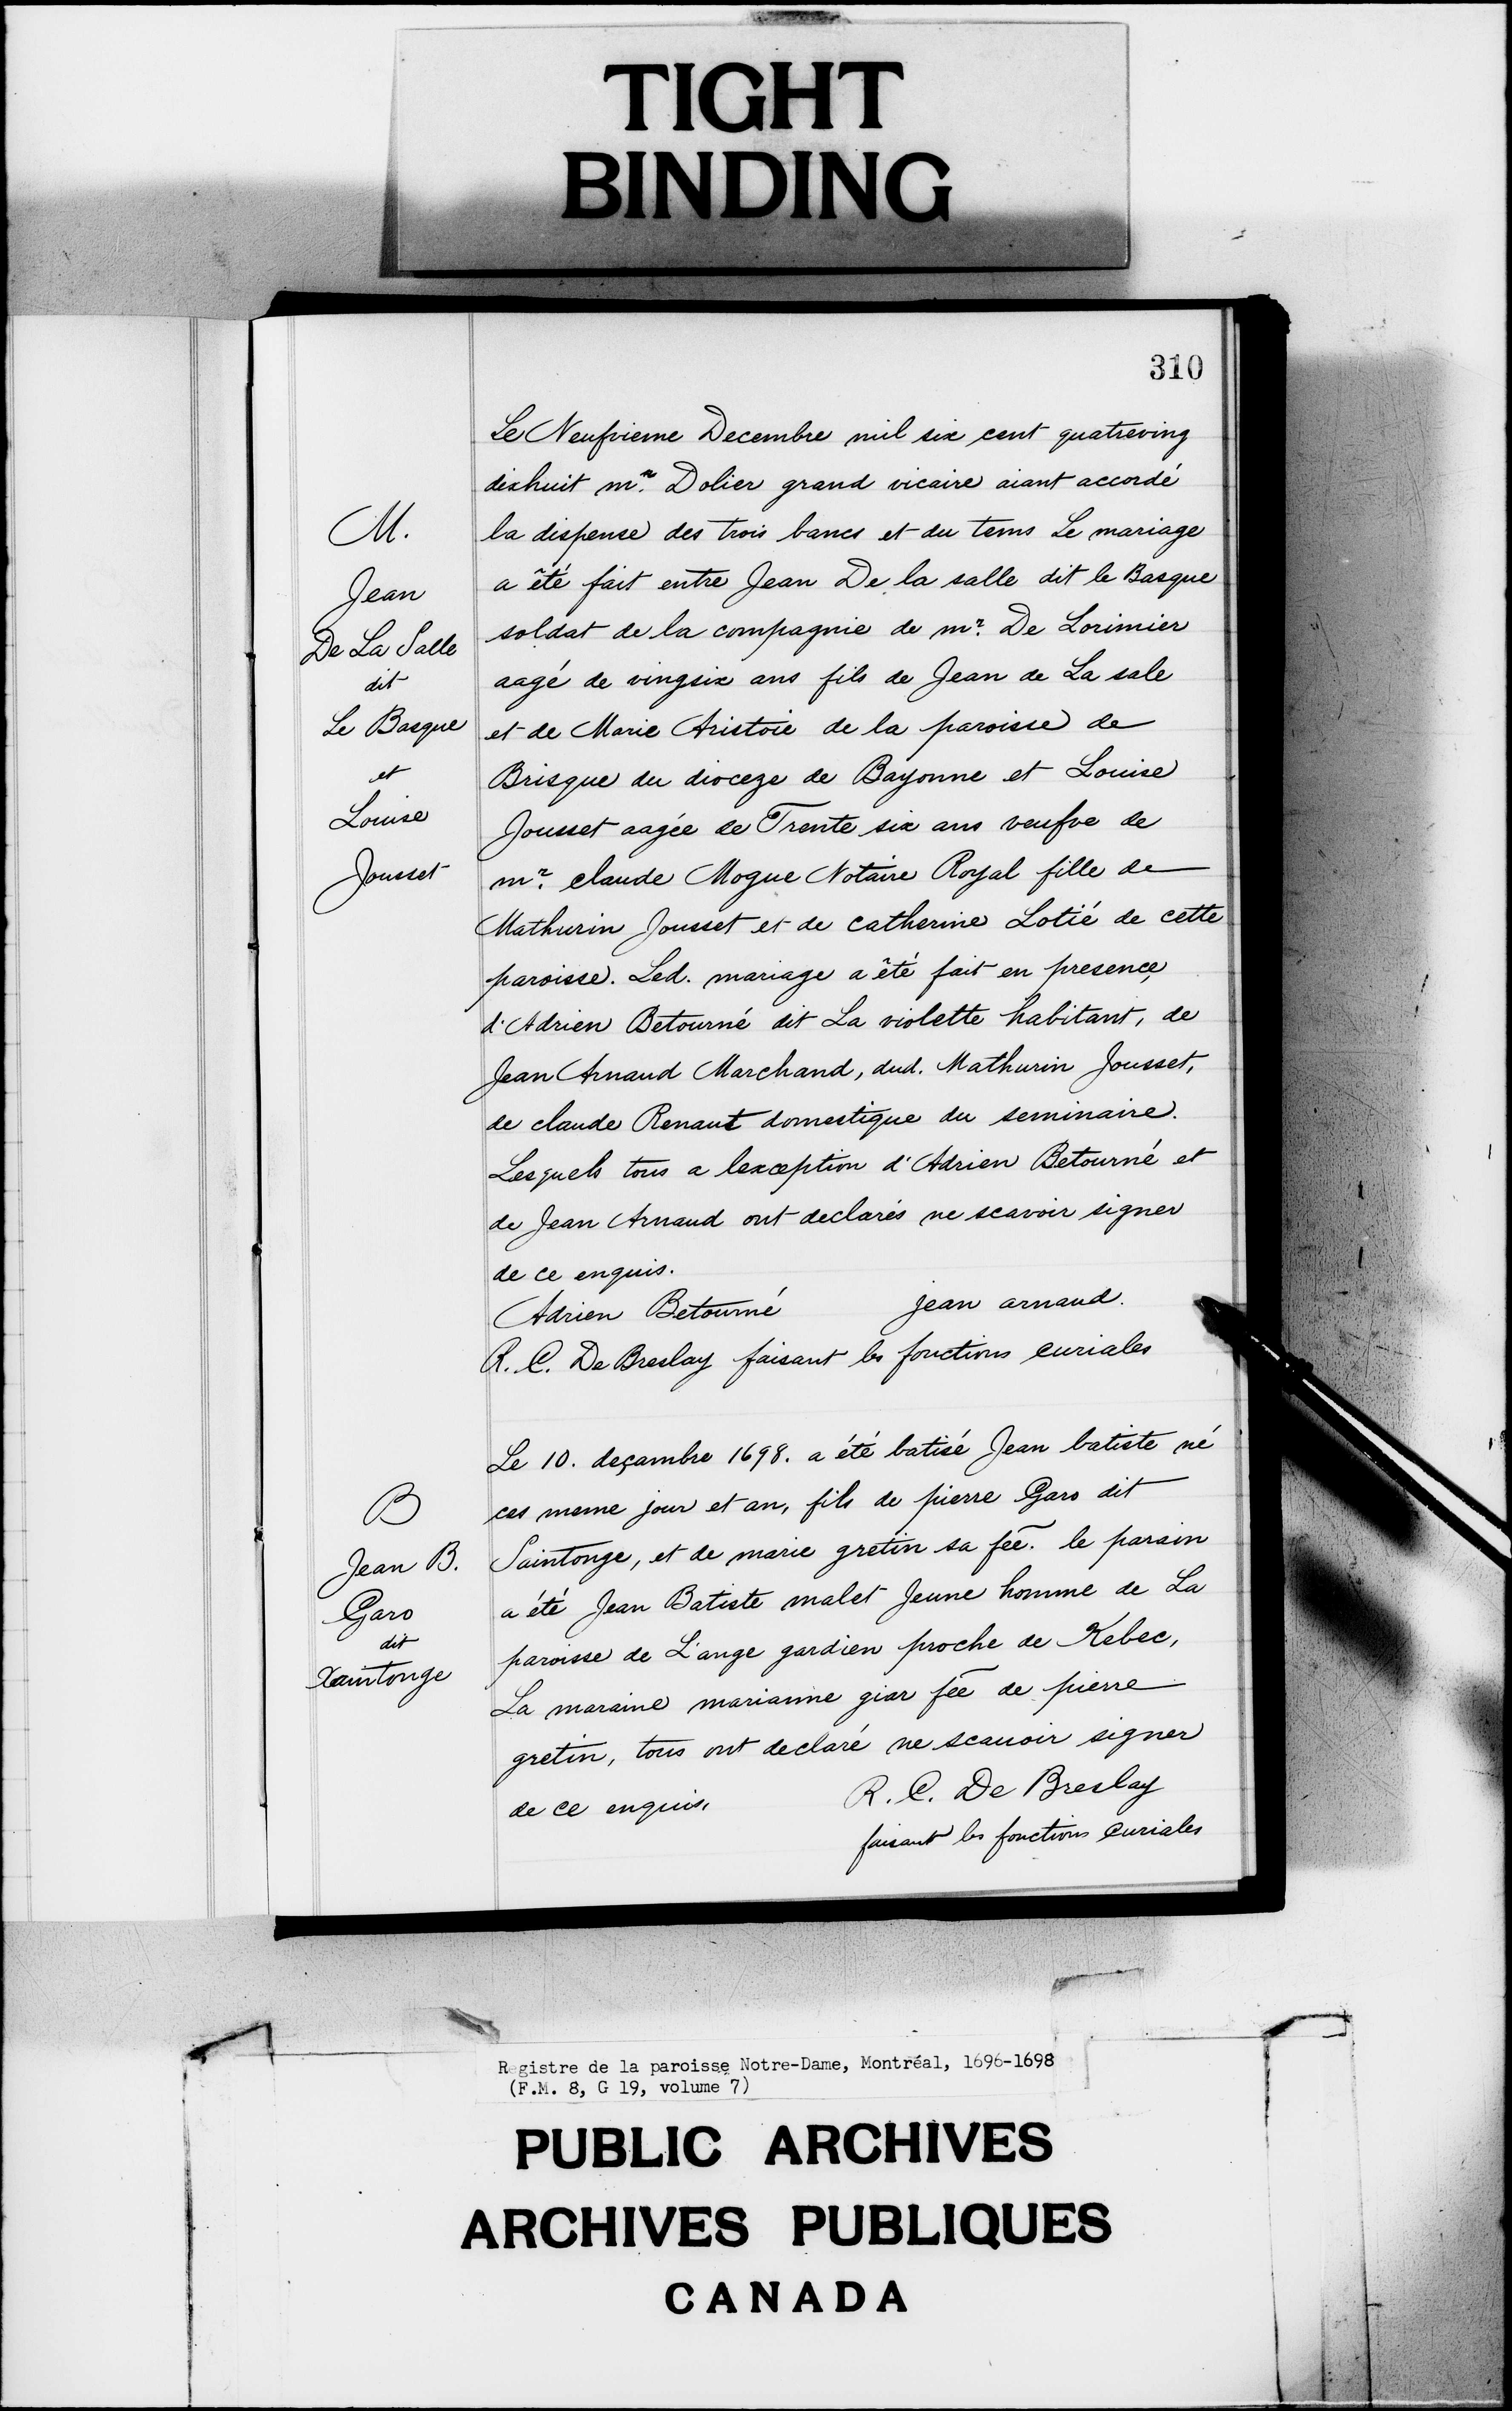 TIGHT
BINDING
310
Le Neufvieme Decembre mil six cent quatreving
dixhuit mr. Dolier grand vicaire aiant accordé
la dispense des trois bancs et du tems Le mariage
a êté fait entre Jean De la salle dit le Basque
soldat de la compagnie de mr. De Lorimier
aagé de vingsix ans fils de Jean de La sale
et de Marie Aristoie de la paroisse de
Brisque du dioceze de Bayonne et Louise
Jousset aagée de Trente six ans veufve de
mr. claude Mogue Notaire Royal fille de
Mathurin Jousset et de catherine Lotié de cette
paroisse. Led. mariage a êté fait en presence
d'Adrien Betourné dit La violette habitant, de
Jean Arnaud Marchand, dud. Mathurin Jousset,
de claude Renaut domestique du seminaire.
Lesquels tous a lexception d'Adrien Betourné et
de Jean Arnaud ont declarés ne scavoir signer
de ce enquis.
Adrien Betourné jean arnaud.
R. C. De Breslay faisant les fonctions curiales
M.
Jean
De La Salle
dit
Le Basque
et
Louise
Jousset
Le 10. deçambre 1698. a été batisé Jean batiste né
ces meme jour et an, fils de pierre Garo dit
Saintonge, et de marie gretin sa feē. le parain
a été Jean Batiste malet Jeune homme de La
paroisse de L'ange gardien proche de Kebec,
La maraine marianne giar feē de pierre
gretin, tous ont declaré ne scauoir signer
de ce enquis. R. C. De Breslay
faisant les fonctions Curiales
B
Jean B.
Garo
dit
Xaintonge
Registre de la paroisse Notre-Dame, Montréal, 1696-1698
(F.M. 8, G 19, volume 7)
PUBLIC ARCHIVES
ARCHIVES PUBLIQUES
CANADA